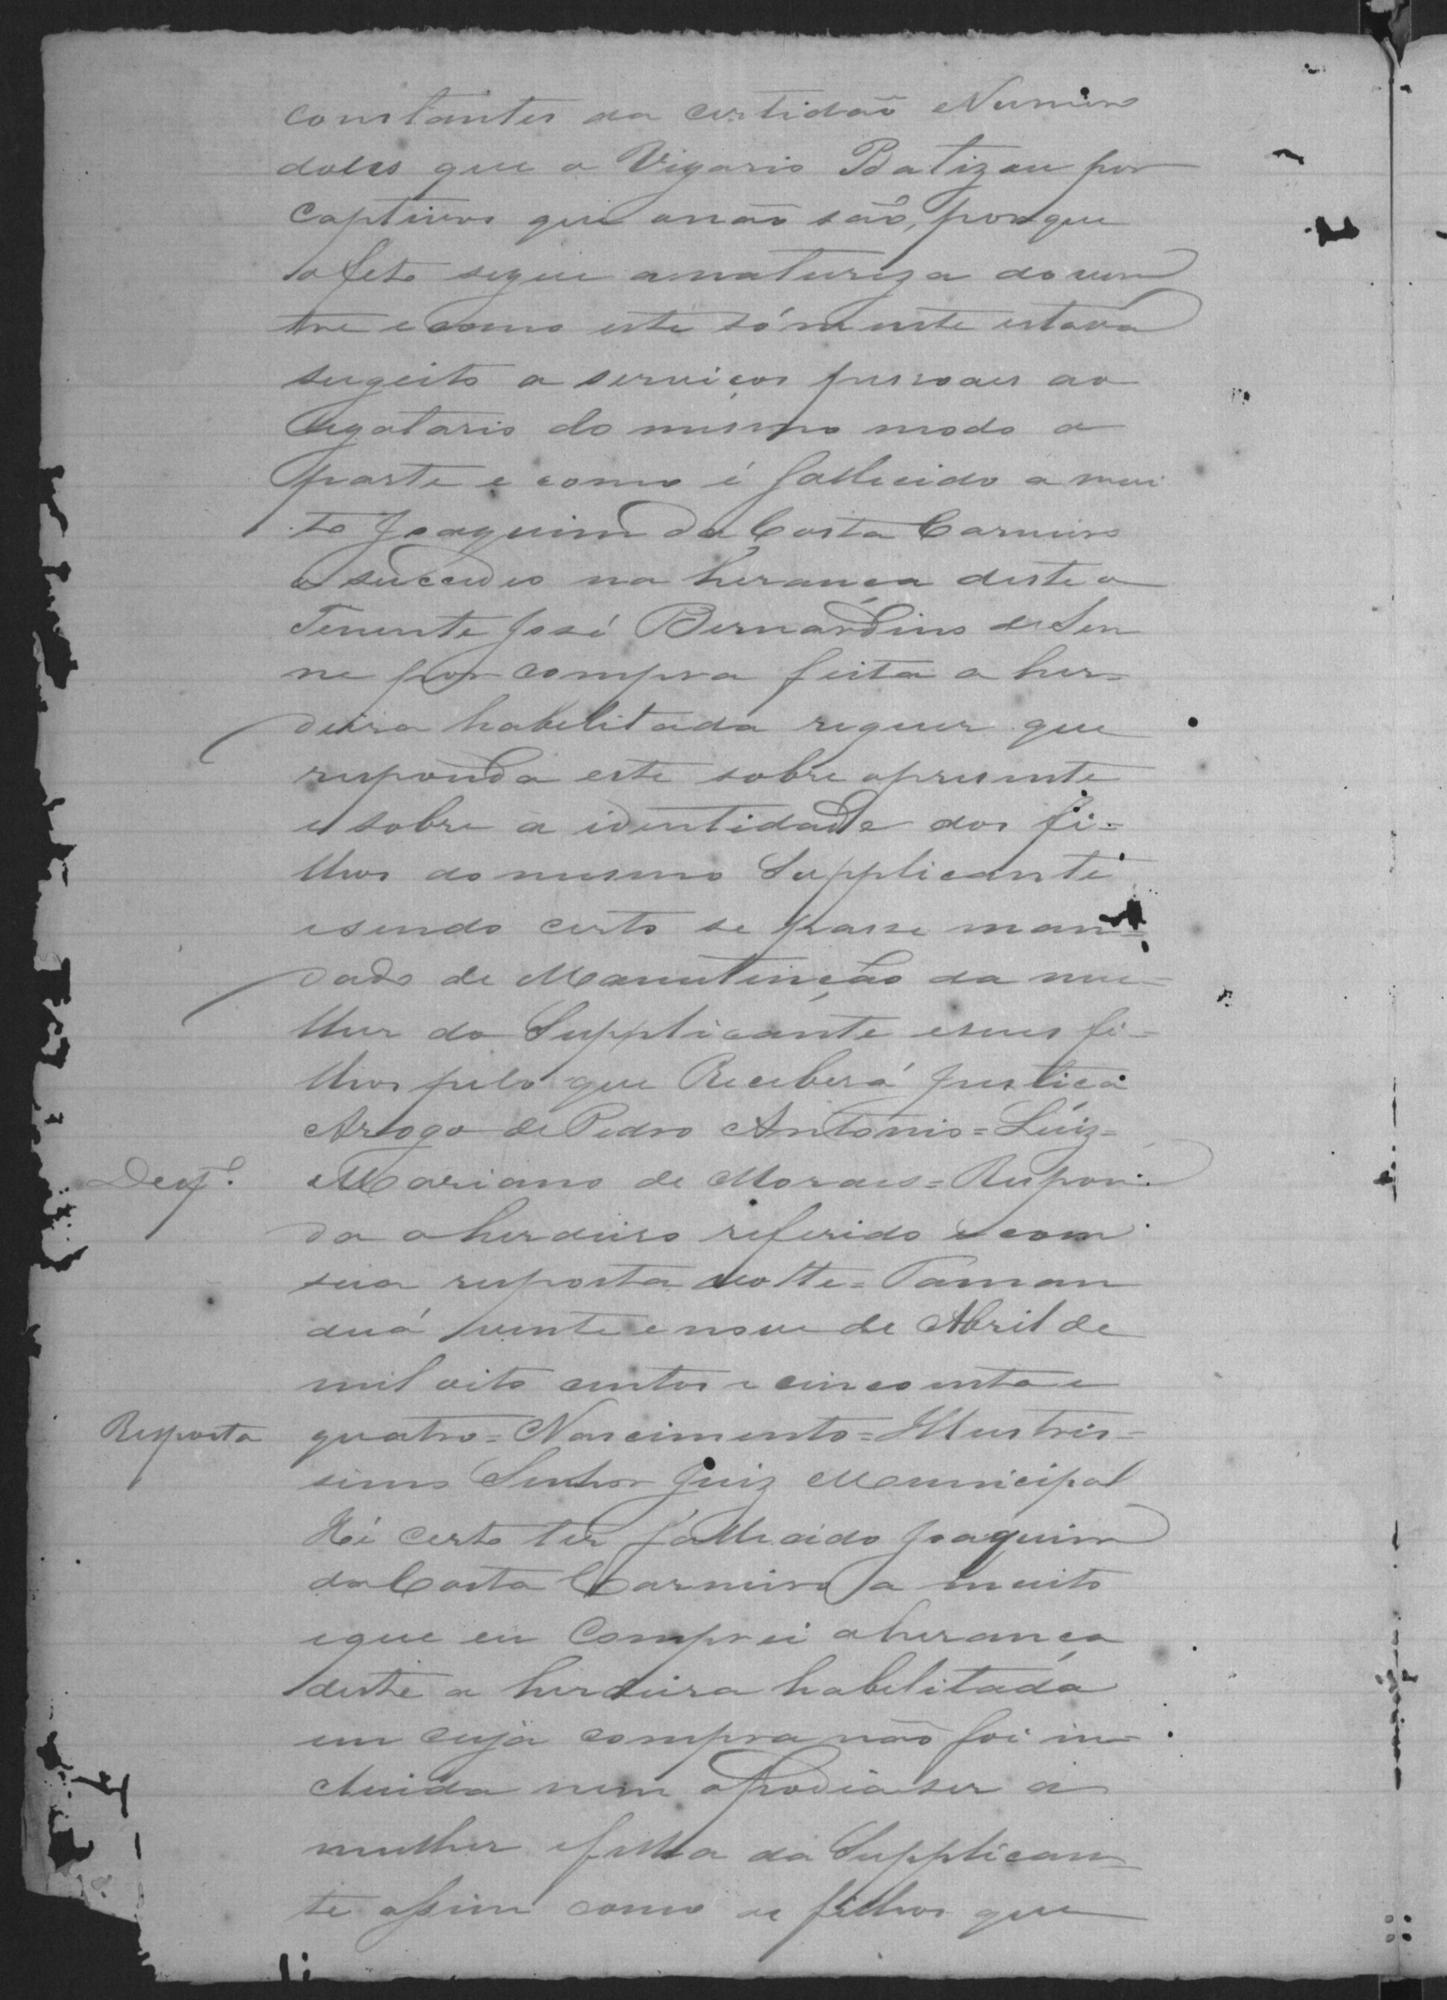 constantes da certidão Numero
dolcs que o Vigario Batizou por
captivos que anão são, porque
o feto segue anatureza doven
tre e como este sómente estava
sugeito a serviços pessoaes ao
Legatario do mesmo modo o
parte e como é fallecido a mui
to Joaquim da Costa Carneiro
e succedeo na herança deste o
Tenente José Bernardino de Sen
ne por compra feita a her-
deira habelitada requer que
responda este sobre opresente
e sobre a identidade dos fi-
lhos do mesmo Supplicante
esendo certo se passe man-
dado de Manutenção da mu-
lher do Supplicante eseus fi-
lhos pelo que Receberá justiça
Arogo de Pedro Antonio = Luiz =
Desp.º Mariano de Moraes = Respon-
da oherdeiro referido e com
sua resposta volte = Taman
duá vinte e nove de Abril de
mil oito centos e cincoenta e
Resposta quatro = Nascimento = Illustris-
simo Senhor Juiz Municipal
Hé certo ter fallecido Joaquim
da Costa Carneiro a muito
eque eu Comprei aherança
deste a herdeira habelitada
em cuja compra não foi in-
cluida nem apodia ser a
mulher efilha do Supplican-
te assim como os filhos que